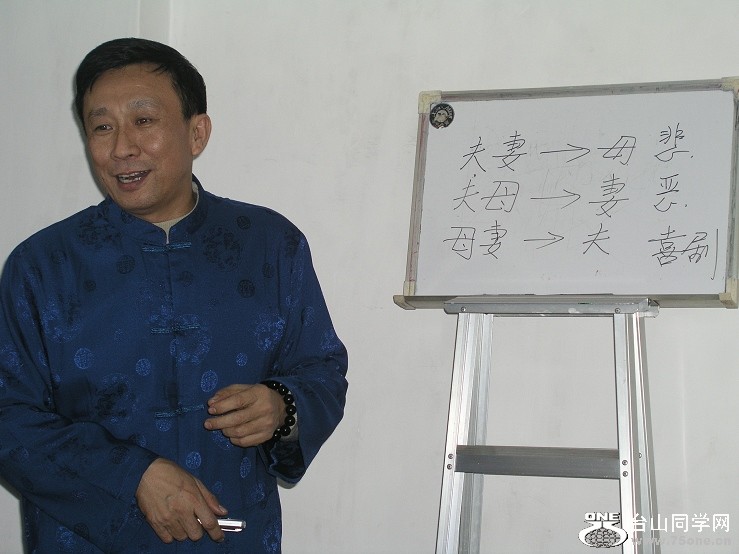 夫妻→母 悲.
夫母→妻 恶.
母妻→夫 喜剧
ONE 台山同学网
www.75one.cn